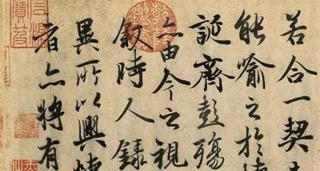 若合一契
能喻之於
誕齊彭殤
亦由今之視
敘時人錄
異所以興
者亦將有